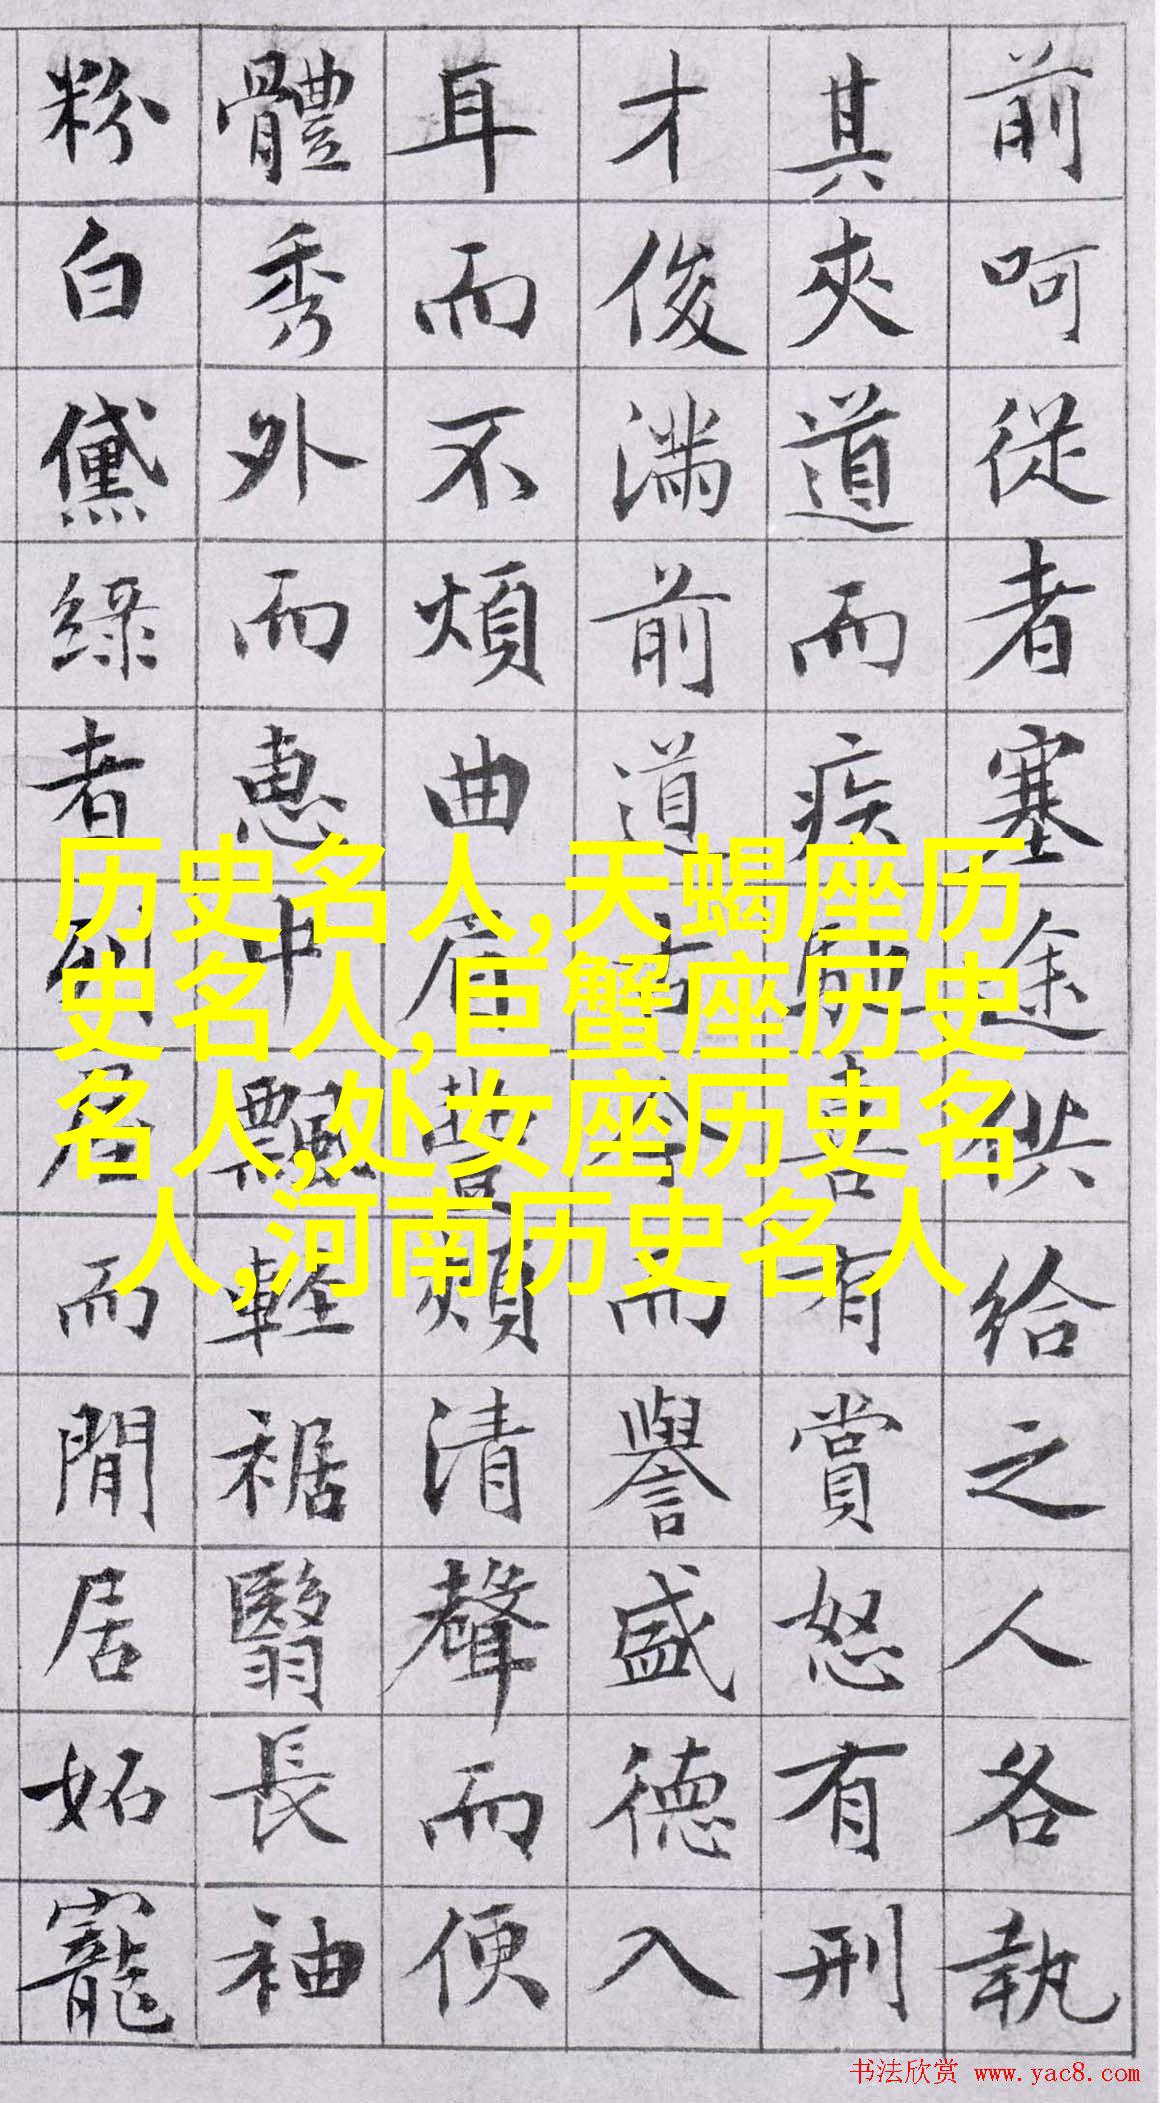 前呵從者塞途供給之人各執
其夾道而疾馳喜有賞怒有刑
才俊滿前道古今而譽盛德入
耳而不煩曲眉豐頰清聲而便
體秀外而惠中飄輕裾翳長袖
粉白黛綠者列屋而閒居妬寵
历史名人,天蝎座历
史名人,巨蟹座历史
名人,处女座历史名
人,河南历史名人
书法欣赏 www.yac8.com